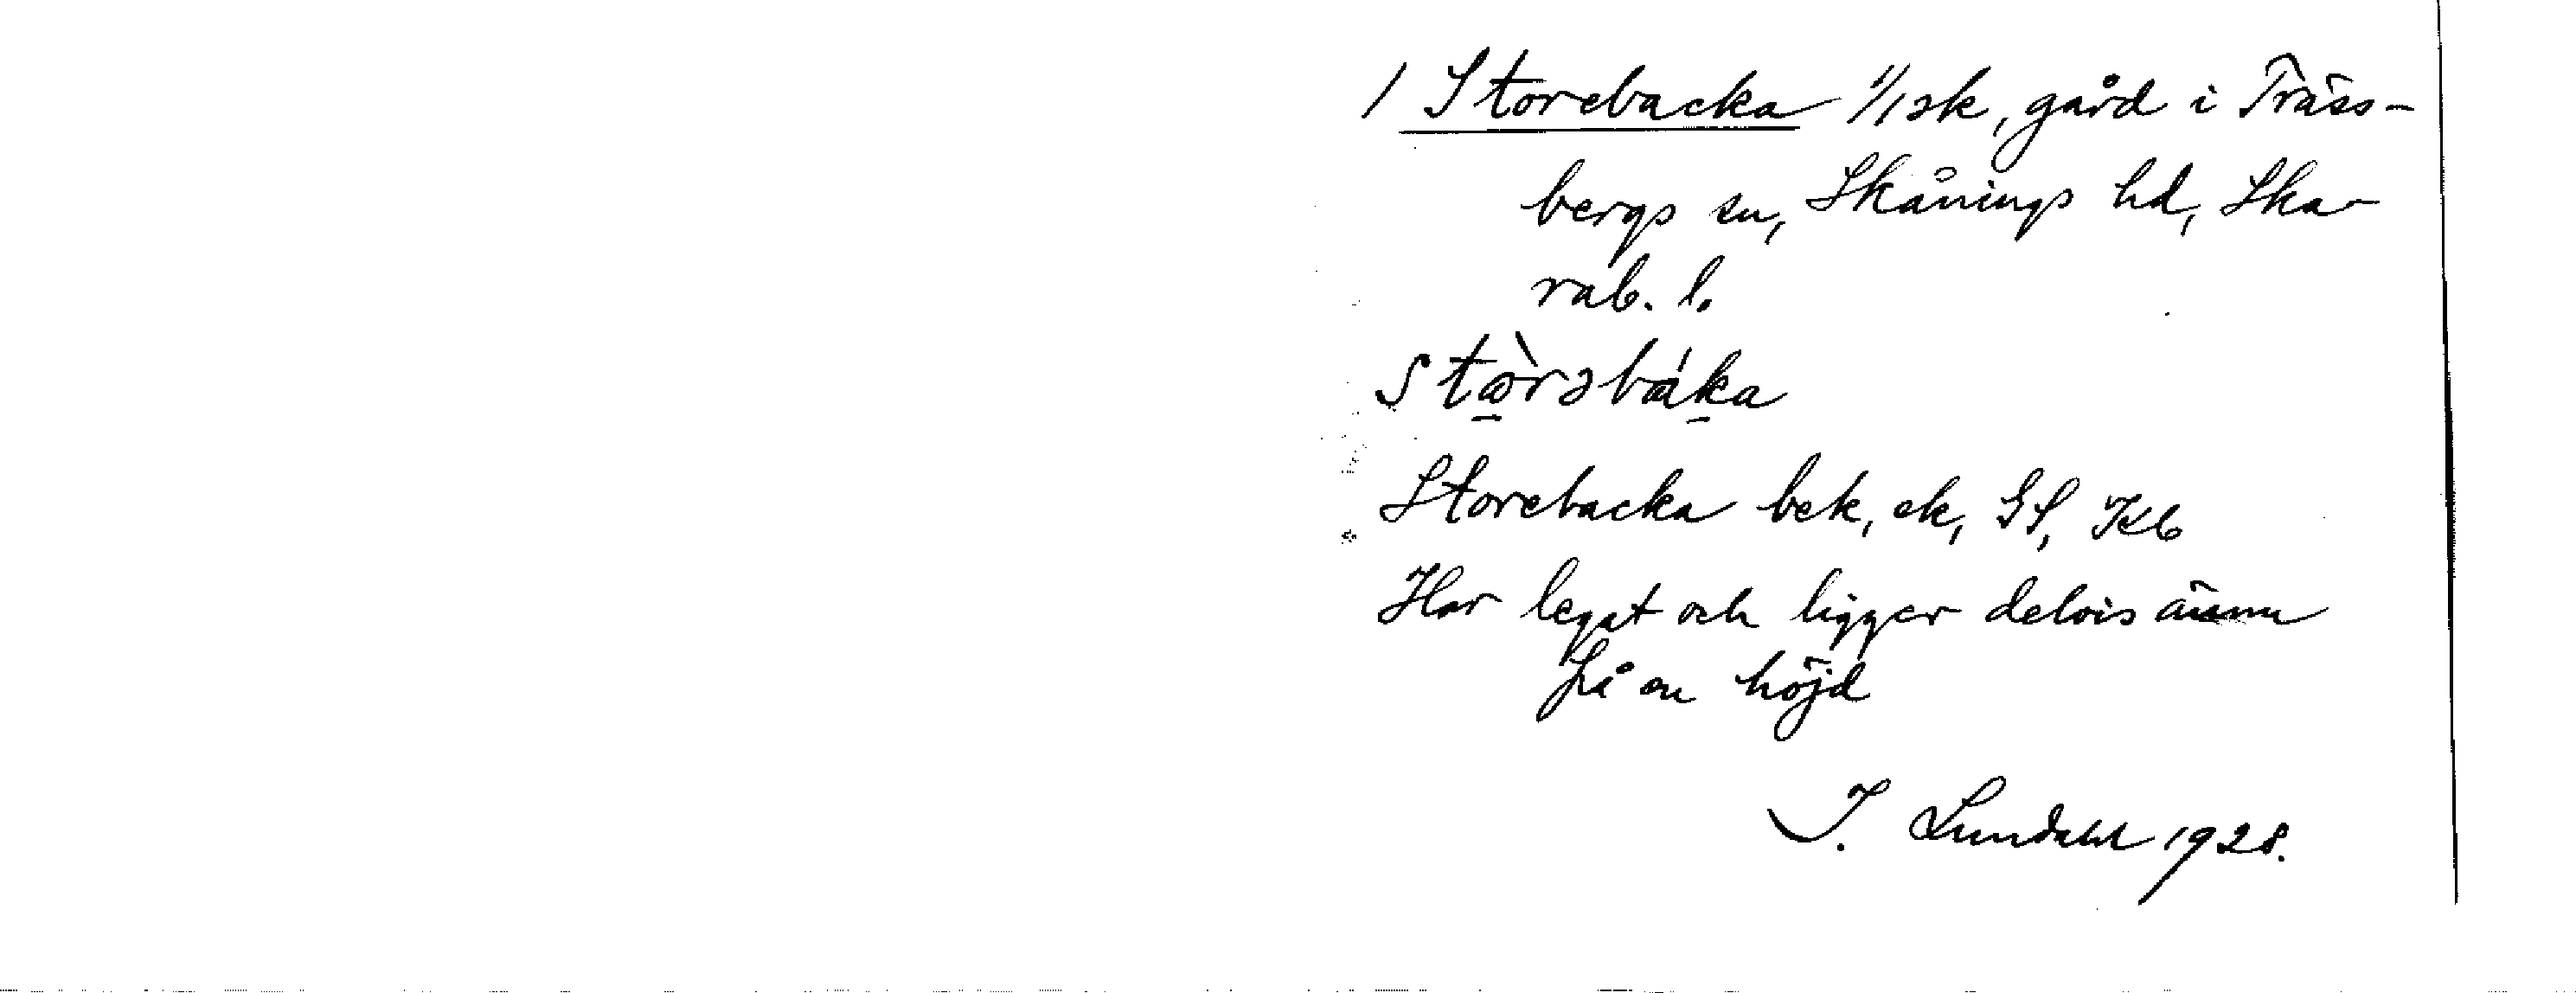 1 Storebacka 1/1 sk, gård i Träss-
bergs sn, Skånings hd, Ska-
rab. l.
stòrəbáka
Storebacka bek, ek, GS, Kb
Har legat och ligger delvis ännu
på en höjd
I. Lundahl 1928.